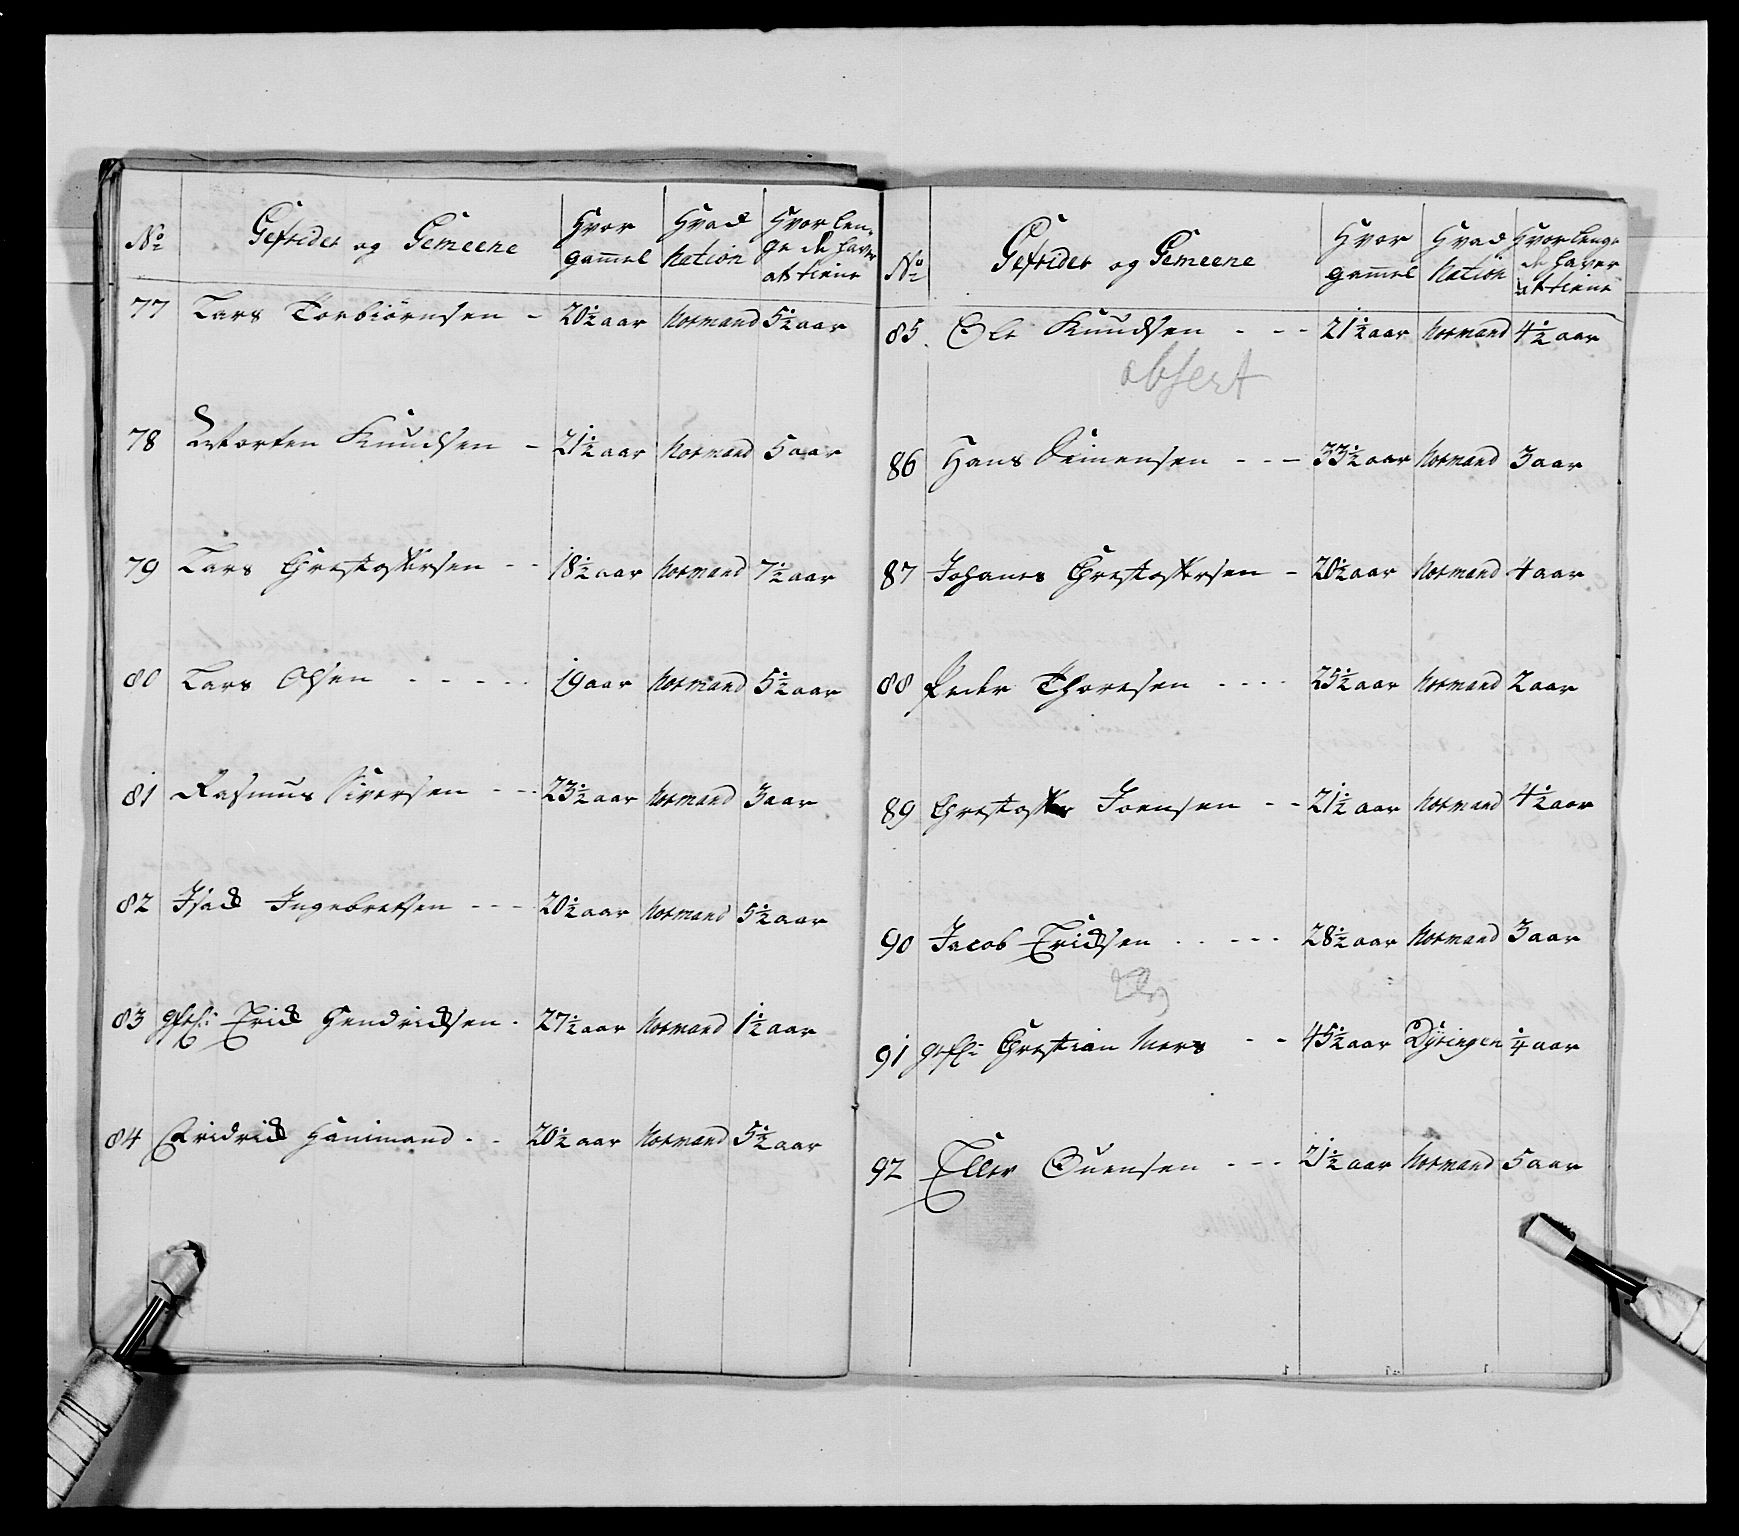 No Gefrider og Gemeene Hvor gammel Hvad Nation Hvor len- ge de haver at tiene
77 Lars Torbiörnsen - 20½ aar Normand 5½ aar
78 Morten Knudsen - 21½ aar Normand 5 aar
79 Lars Chrestophersen - - 18½ aar Normand 7½ aar
80 Lars Olsen - - - - - 19 aar Normand 5½ aar
81 Rasmus Siversen - - - 23½ aar Normand 3 aar
82 Isack Ingebretsen - - - 20½ aar Normand 5½ aar
83 Erick Hendricksen - 27½ aar Normand 1½ aar
84 Fridrick Hanimand - - 20½ aar Normand 5½ aar
No Gefrider og Gemeene Hvor gammel Hvad Nation Hvor lenge de haver at tiene
85 Ole Knudsen - - - 21½ aar Normand 4½ aar
absent
86 Hans Simensen - - - 33½ aar Normand 3 aar
87 Johanes Chrestophersen - 20½ aar Normand 4 aar
88 Peder Thoresen - - - - 25½ aar Normand 2 aar
89 Chrestopher Joensen - - 21½ aar Normand 4½ aar
90 Jacob Ericksen - - - - - 28½ aar Normand 3 aar
91 Chrestian Mers - - 45½ aar ¼ aar
92 Eller Ouensen - - - 21½ aar Normand 5 aar